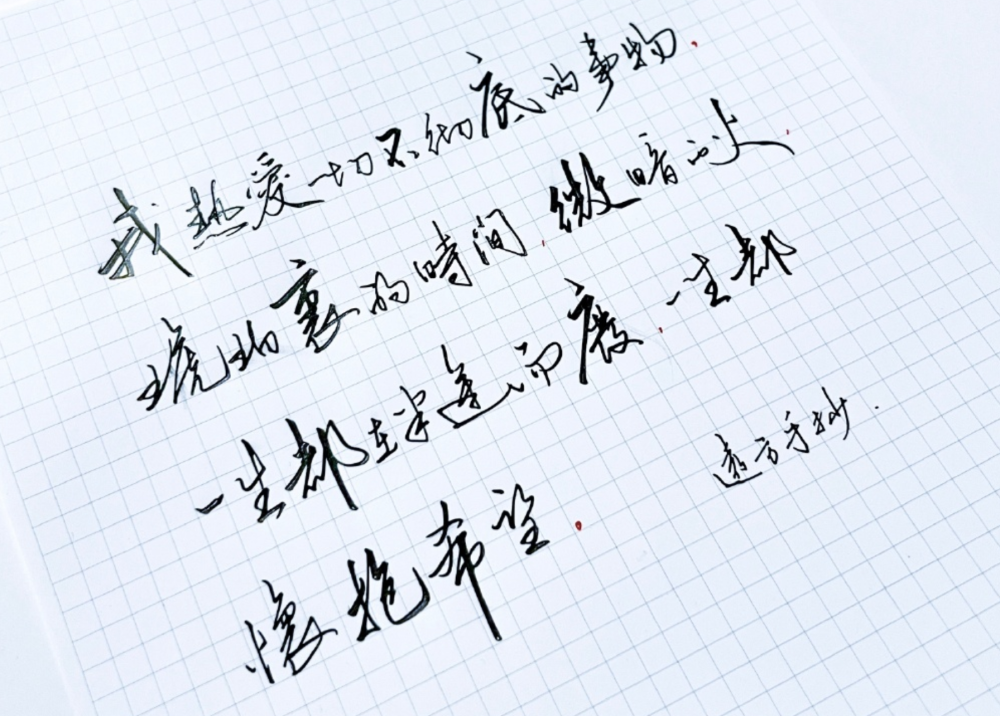 我熱愛一切不彻底的事物.
琥珀裏的時間.微暗的火.
一生都在半途而廢.一生都
懷抱希望.
遠方手抄.